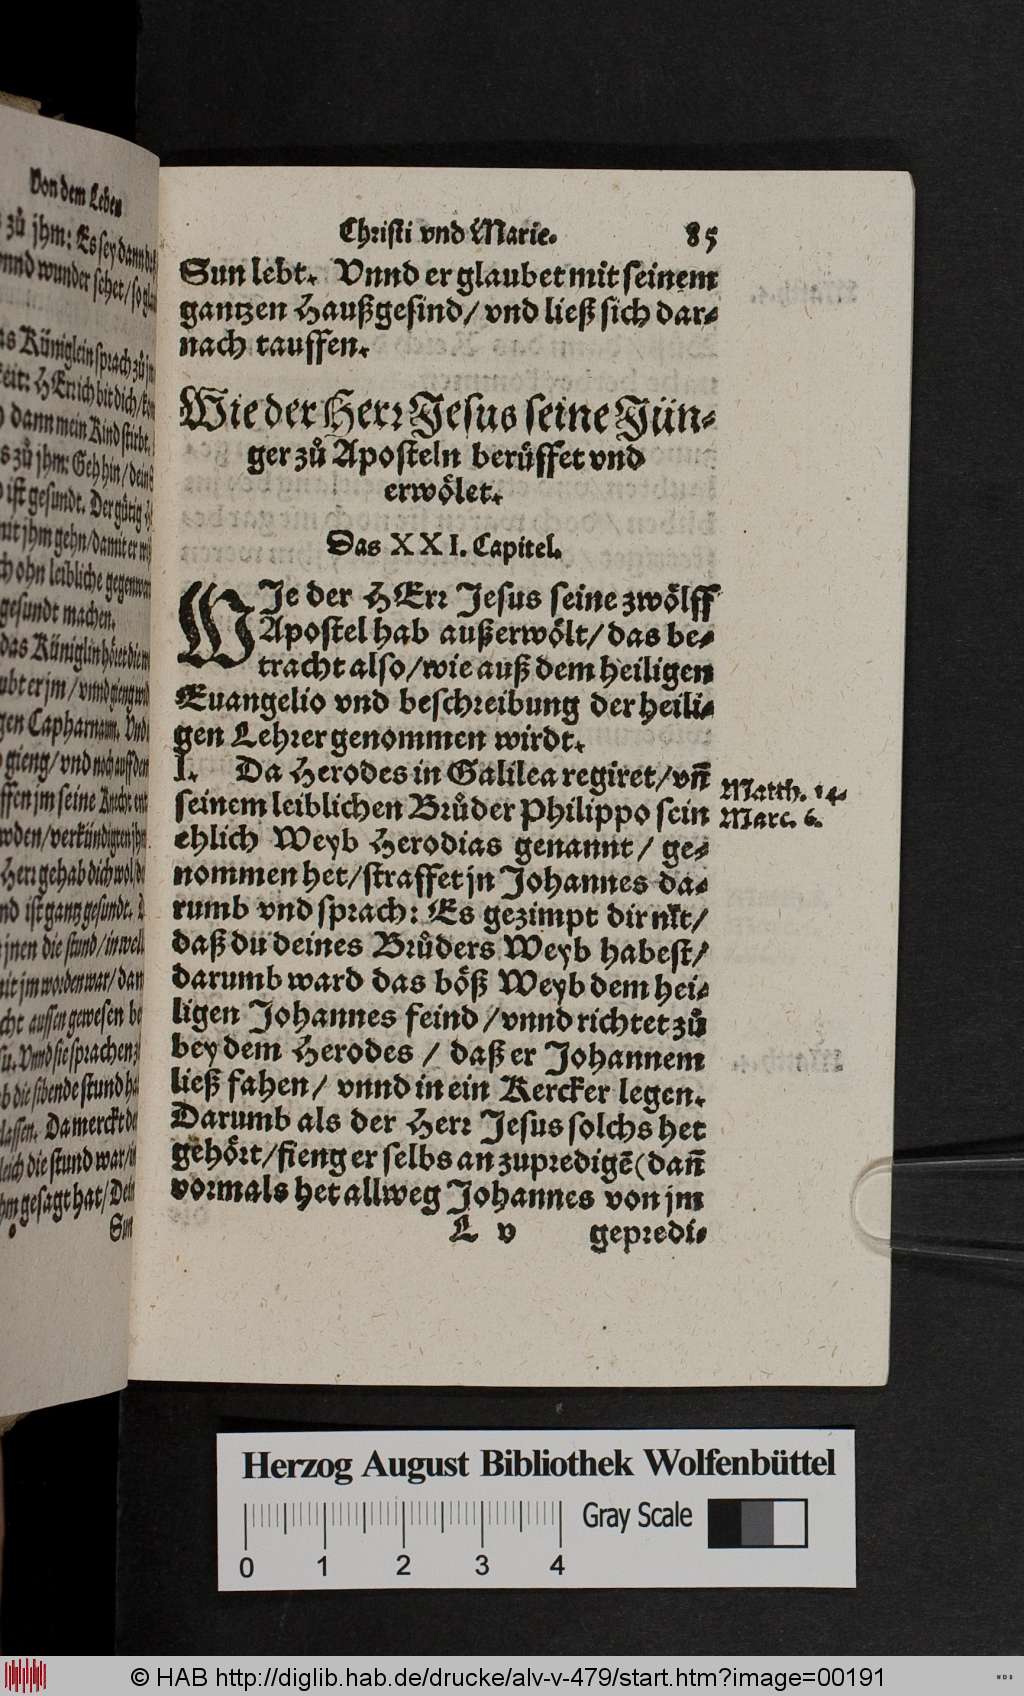 Von dem Leben
zů jhm: Es sey dann
vnnd wunder sehet/ so
Küniglein sprach zů
HErr ich bit dich/
dann mein Kind stirbt.
zů jhm: Geh hin/ dein
ist gesundt. Der gütig
mit jhm gehn/ damit er
ohn leibliche gegenwer
gesundt machen.
das Küniglin höret
er jm/ vnnd gieng
gen Capharnaum. Vnd
gieng/ vnd noch auff dem
jm seine Knecht ent
verkündigten jhm
Herr gehab dich wol/
ist gantz gesundt.
jnen die stund/ in
jm worden war/ dan
aussen gewesen
Vnnd sie sprachen
die sibende stund
Da merckt
die stund war/
gesagt hat/ Dein
Sun
Christi vnd Marie. 85
Sun lebt. Vnnd er glaubet mit seinem
gantzen Haußgesind/ vnd ließ sich dar-
nach tauffen.
Wie der Herr Jesus seine Jün-
ger zů Aposteln berüffet vnd
erwölet.
Das XXI. Capitel.
WJe der HErr Jesus seine zwölff
Apostel hab außerwölt/ das be-
tracht also/ wie auß dem heiligen
Euangelio vnd beschreibung der heili-
gen Lehrer genommen wirdt.
I. Da Herodes in Galilea regiret/ vñ
seinem leiblichen Brůder Philippo sein
ehlich Weyb Herodias genannt/ ge-
nommen het/ straffet jn Johannes da-
rumb vnd sprach: Es gezimpt dir nit/
daß du deines Brůders Weyb habest/
darumb ward das böß Weyb dem hei-
ligen Johannes feind/ vnnd richtet zů
bey dem Herodes/ daß er Johannem
ließ fahen/ vnnd in ein Kercker legen.
Darumb als der Herr Jesus solchs het
gehört/ fieng er selbs an zupredigē (dañ
vormals het allweg Johannes von jm
L v gepredi-
Matth. 14.
Marc. 6.
Herzog August Bibliothek Wolfenbüttel
Gray Scale
0 1 2 3 4
© HAB http://diglib.hab.de/drucke/alv-v-479/start.htm?image=00191